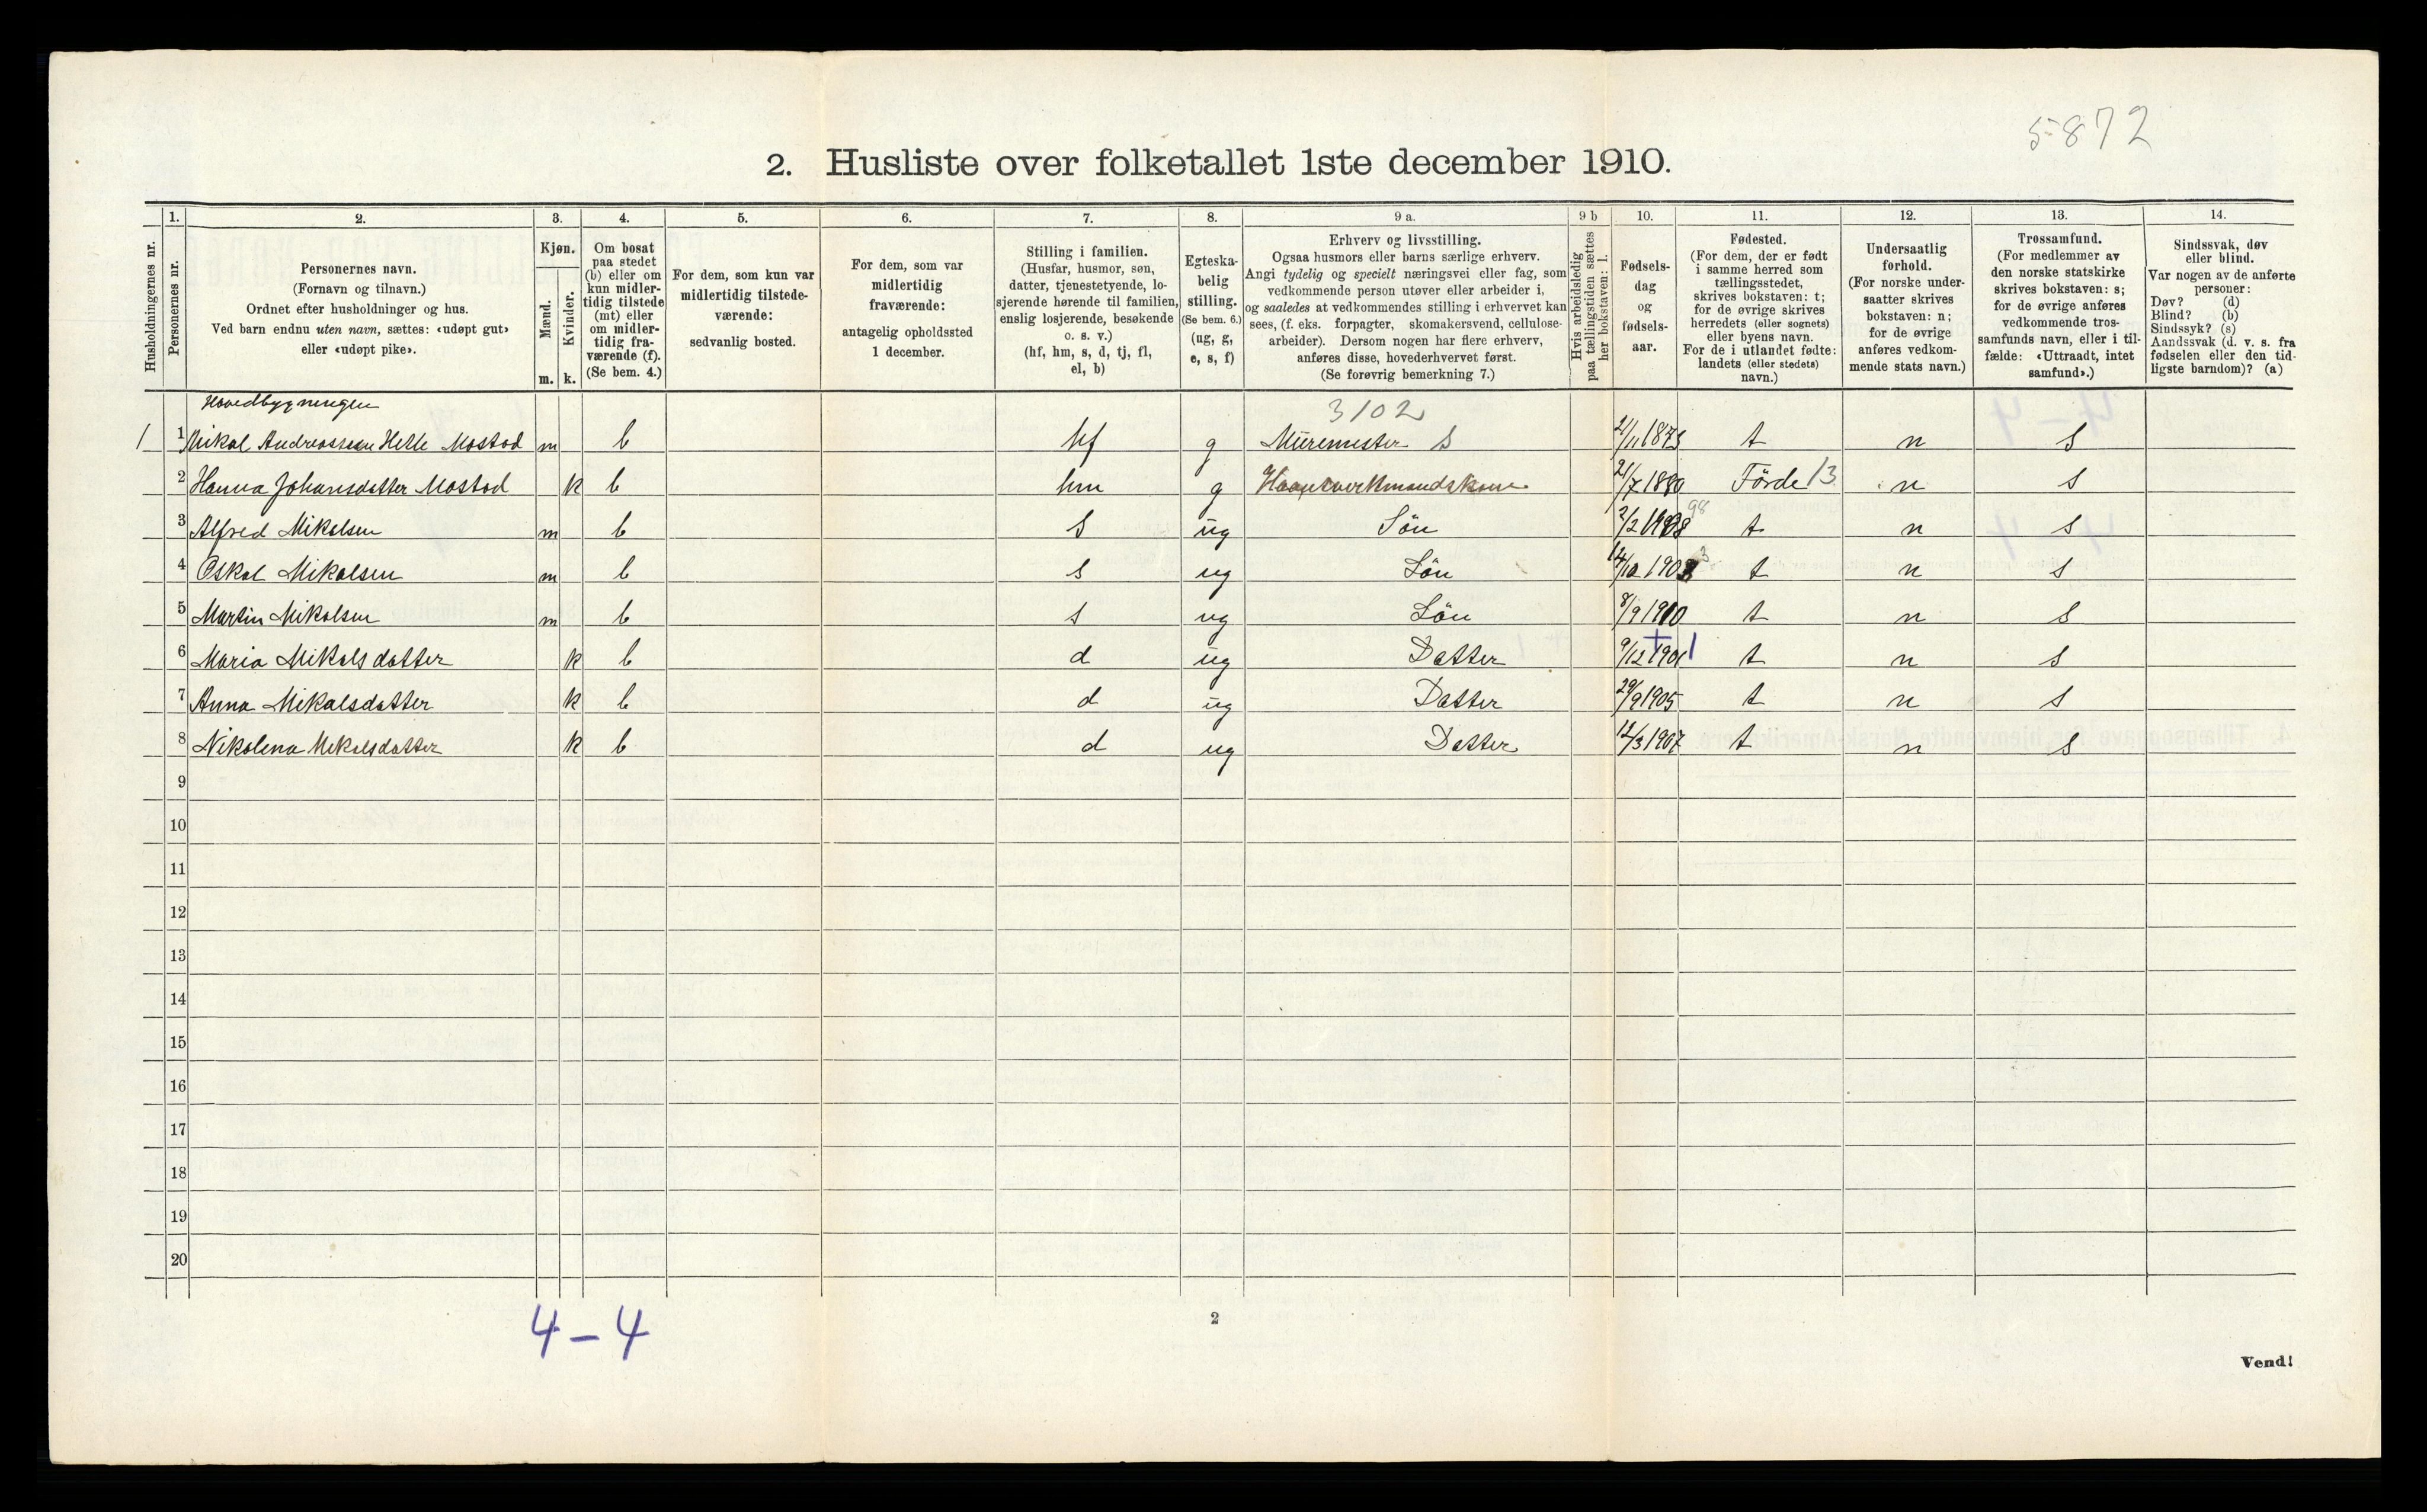 5872
2. Husliste over folketallet 1ste december 1910.
Husholdningernes nr.
1.
Personernes nr.
2.
Personernes navn.
(Fornavn og tilnavn.)
Ordnet efter husholdninger og hus.
Ved barn endnu uten navn, sættes: «udøpt gut»
eller «udøpt pike».
3.
Kjøn.
Mænd.
Kvinder.
m. k.
4.
Om bosat
paa stedet
(b) eller om
kun midler-
tidig tilstede
(mt) eller
om midler-
tidig fra-
værende (f).
(Se bem. 4.)
5.
For dem, som kun var
midlertidig tilstede-
værende:
sedvanlig bosted.
6.
For dem, som var
midlertidig
fraværende:
antagelig opholdssted
1 december.
7.
Stilling i familien.
(Husfar, husmor, søn,
datter, tjenestetyende, lo-
sjerende hørende til familien,
enslig losjerende, besøkende
o. s. v.)
(hf, hm, s, d, tj, fl,
el, b)
8.
Egteska-
belig
stilling.
(Se bem. 6.)
(ug, g,
e, s, f)
9 a.
Erhverv og livsstilling.
Ogsaa husmors eller barns særlige erhverv.
Angi tydelig og specielt næringsvei eller fag, som
vedkommende person utøver eller arbeider i,
og saaledes at vedkommendes stilling i erhvervet kan
sees, (f. eks. forpagter, skomakersvend, cellulose-
arbeider). Dersom nogen har flere erhverv,
anføres disse, hovederhvervet først.
(Se forøvrig bemerkning 7.)
9 b
Hvis arbeidsledig
paa tællingstiden sættes
her bokstaven: l.
10.
Fødsels-
dag
og
fødsels-
aar.
11.
Fødested.
(For dem, der er født
i samme herred som
tællingsstedet,
skrives bokstaven: t;
for de øvrige skrives
herredets (eller sognets)
eller byens navn.
For de i utlandet fødte:
landets (eller stedets)
navn.)
12.
Undersaatlig
forhold.
(For norske under-
saatter skrives
bokstaven: n;
for de øvrige
anføres vedkom-
mende stats navn.)
13.
Trossamfund.
(For medlemmer av
den norske statskirke
skrives bokstaven: s;
for de øvrige anføres
vedkommende tros-
samfunds navn, eller i til-
fælde: «Uttraadt, intet
samfund».)
14.
Sindssvak, døv
eller blind.
Var nogen av de anførte
personer:
Døv? (d)
Blind? (b)
Sindssyk? (s)
Aandssvak (d. v. s. fra
fødselen eller den tid-
ligste barndom)? (a)
Hovedbygningen
3102
1 1 Mikal Andreassen Helle Mostad m b hf g Müremester S 21/11 1873 t n s
2 Hanna Johansdatter Mostad k b hm g Haandverkmandskone 21/7 1880 Förde 13 n s
3 Alfred Mikalsen m b s ug Sön 2/2 1898 98 t n s
4 Oskal Mikalsen m b s ug Sön 14/10 1903 3 t n s
5 Martin Mikalsen m b s ug Sön 8/9 1910 t n s
6 Maria Mikalsdatter k b d ug Datter 9/12 1901 1 t n s
7 Anna Mikalsdatter k b d ug Datter 29/9 1905 t n s
8 Nikolina Mikalsdatter k b d ug Datter 12/3 1907 t n s
9
10
11
12
13
14
15
16
17
18
19
20
4-4
2
Vend!